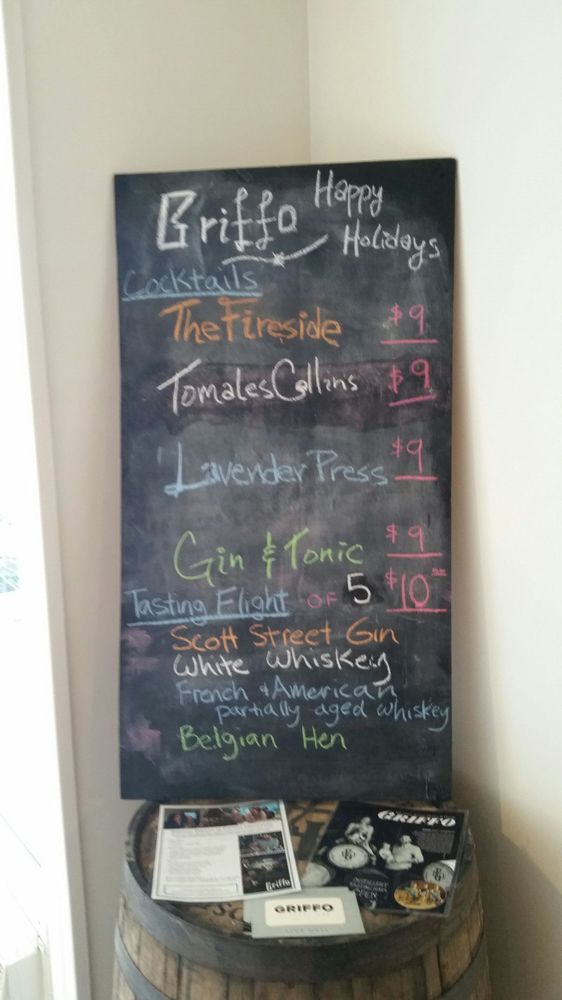 Griffo Happy
Holidays
Cocktails
The Fireside $9
Tomales Collins $9
Lavender Press $9
Gin & Tonic $9
Tasting Flight OF 5 $10
Scott Street Gin
White Whiskey
French & American
partially aged whiskey
Belgian Hen
Griffo
GRIFFO
GRIFFO